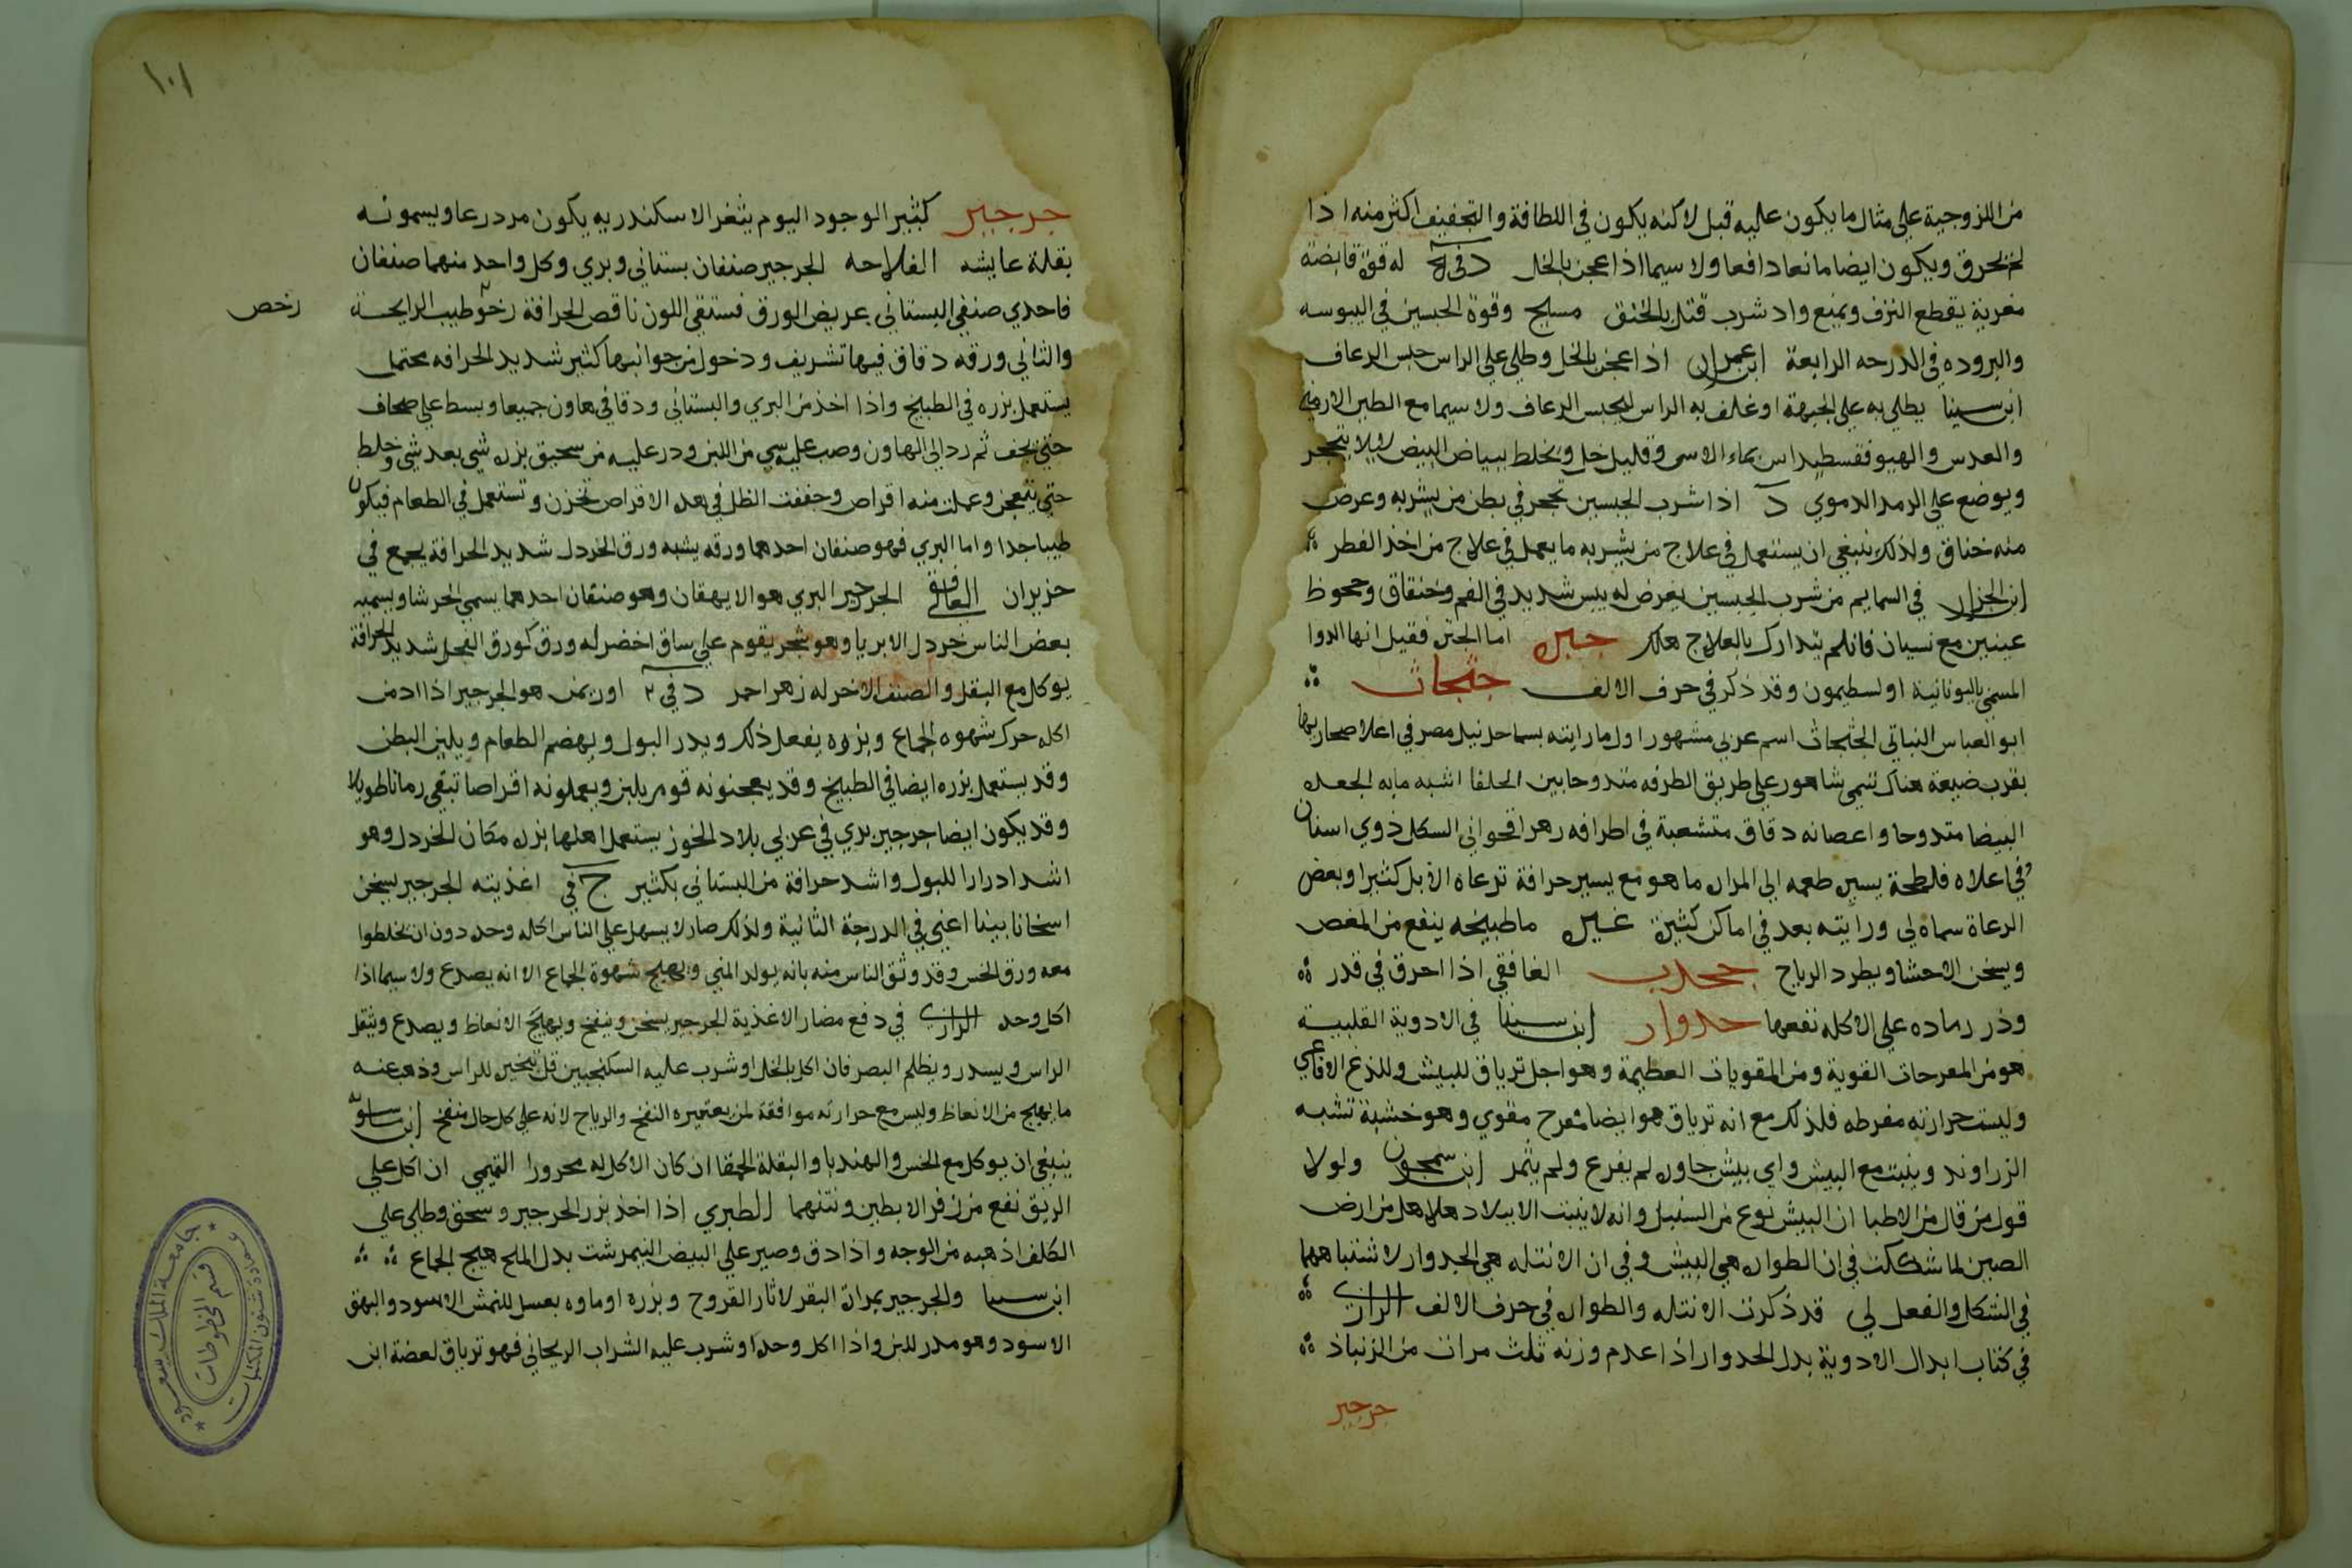 من اللزوجية على مثال ما يكون عليه قبل لاكنه يكون في اللطافة والتجفيف اكثر منه اذا
لم يحرق ويكون ايضا مانعا دافعا ولا سيما اذا عجن بالخل د في له قوة قابضة
مغرية يقطع النزف ويمنع واد شرب قتل بالخنق مسيح وقوة الجبسين في اليبوسه
والبروده في الدرجه الرابعة ابن عمران اذا عجن بالخل وطلي على الراس حبس الرعاف
ابن سينا يطلى به على الجبهة او غلف به الراس ليحبس الرعاف ولا سيما مع الطين الارمني
والعدس والهيوفقسطيداس بماء الاسى وقليل خل ويخلط ببياض البيض ليلا يتحجر
ويوضع على الرمد الدموي د اذا شرب الجبسين تحجر في بطن من يشربه وعرض
منه خناق ولذلك ينبغي ان يستعمل في علاج من يشربه ما يعمل في علاج من اخذ الفطر
ابن الجزار في السمايم من شرب الجبسين يعرض له يبس شديد في الفم وخنقاق وجحوظ
عينين مع نسيان فان لم يتدارك بالعلاج هلك جبره اما الجبن فقيل انها الدوا
المسمى باليونانية اولسطيمون وقد ذكر في حرف الالف جثجاث
ابو العباس النباتي الجثجاث اسم عربي مشهور اول ما رايته بساحل نيل مصر في اعلا صحاريها
بقرب ضيعة هناك تسمى شاهور على طريق الطرفه متدوحا بين الحلفا اشبه مابه الجعده
البيضا متدوحا واعصانه دقاق متشعبة في اطرافه زهر اقحواني السكل ذوي اسنان
وفي اعلاه فلطحة يسيره طعمه الى المراره ما هو مع يسير حرافة ترعاه الابل كثيرا وبعض
الرعاة سماه لي ورأيته بعد في اماكن كثيرة غيره ما طبيخه ينفع من المغص
ويسخن الاحشا ويطرد الرياح جحدب الغافقي اذا احرق في قدر
وذر رماده على الاكله نفعها جدوار ابن سينا في الادوية القلبية
هو من المفرحات القوية ومن المقويات العظيمة وهو اجل ترياق للبيش وللذغ الافاعي
وليست حرارته مفرطه فلذلك مع انه ترياق هو ايضا مفرح مقوي وهو خشبة تشبه
الزراوند وينبت مع البيش واي بيش جاوره لم يفرع ولم يثمر ابن سمجون ولولا
قول من قال من الاطبا ان البيش نوع من السنبل وانه لا ينبت الا ببلاد هلاهل من ارض
الصين لما شككت في ان الطواره هي البيش وفي ان الانتله هي الجدوار لاشتباههما
في الشكل والفعل لي قد ذكرت الانتله والطواره في حرف الالف الرازي
في كتاب ابدال الادوية بدل الجدوار اذا عدم وزنه ثلث مرات من الزنباد
جرجير
١٠١
جرجير كثير الوجود اليوم بثغر الاسكندريه يكون مزدرعا ويسمونه
بقلة عايشه الفلاحه الجرجير صنفان بستاني وبري وكل واحد منهما صنفان
فاحدي صنفي البستاني عريض الورق فستقي اللون ناقص الحرافة رخو طيب الرايحة
رخص
والثاني ورقه دقاق فيها تشريف ودخول من جوانبها كثير شديد الحرافه محتمل
يستعمل بزره في الطبيخ واذا اخذ من البري والبستاني ودقا في هاون جميعا وبسط على صحاف
حتى يجف ثم رد الى الهاون وصب عليه سي من اللبن ودر عليه من سحيق بزره شي بعد شي وخلط
حتى يتعجن وعملت منه اقراص وجففت الظل في هذه الاقراص تخزن وتستعمل في الطعام فيكون
طيبا جدا واما البري فهو صنفان احدهما ورقه يشبه ورق الخردل شديد الحرافة يجمع في
حزيران الغافقي الجرجير البري هو الايهقان وهو صنفان احدهما يسمى الحرشا ويسميه
بعض الناس خردل الابريا وهو شجر يقوم على ساق اخضر له ورق كورق الفجل شديد الحرافة
يوكل مع البقل والصنف الاخر له زهر احمر د في ٢ اوزيمن هو الجرجير اذا ادمن
اكله حرك شهوه الجماع وبزره يفعل ذلك ويدر البول ويهضم الطعام ويلين البطن
وقد يستعمل بزره ايضا في الطبيخ وقد يعجنونه قوم بلبن ويعملونه اقراصا تبقى زمانا طويلا
وقد يكون ايضا جرجير بري في عربي بلاد الخوز يستعمل اهلها بزره مكان الخردل وهو
اشد ادرارا للبول واشد حرافة من البستاني بكثير ج في اغذيته الجرجير يسخن
اسخانا بينا اعني في الدرجة الثانية ولذلك صار لا يسهل على الناس اكله وحده دون ان يخلطوا
معه ورق الخس وقد وثق الناس منه بانه يولد المني ويهيج شهوة الجماع الا انه يصدع ولا سيما اذا
اكل وحده الرازي في دفع مضار الاغذية الجرجير يسخن وينفخ ويهيج الانعاظ ويصدع ويثقل
الراس ويسدر ويظلم البصر فان اكل بالخل او شرب عليه السكنجبين قل تبخيره للراس وذهب عنه
ما يهيج من الانعاظ وليس مع حرارته موافقة لمن يعتريه النفخ والرياح لانه على كل حال منفخ ابن ماسويه
ينبغي ان يوكل مع الخس والهندبا والبقلة الحمقا ان كان الاكل له محرورا التميمي ان اكل على
الريق نفع من زفر الابطين ونتنهما الطبري اذا اخذ بزر الجرجير وسحق وطلي على
الكلف اذهبه من الوجه واذا دق وصير على البيض النيمرشت بدل الملح هيج الجماع
ابن سينا والجرجير بمرارة البقر لاثار القروح وبزره او ماوه بعسل للنمش الاسود والبهق
الاسود وهو مدر للبن واذا اكل وحده او شرب عليه الشراب الريحاني فهو ترياق لعضة ابن
جامعة الملك سعود
عمادة شئون المكتبات
قسم المخطوطات